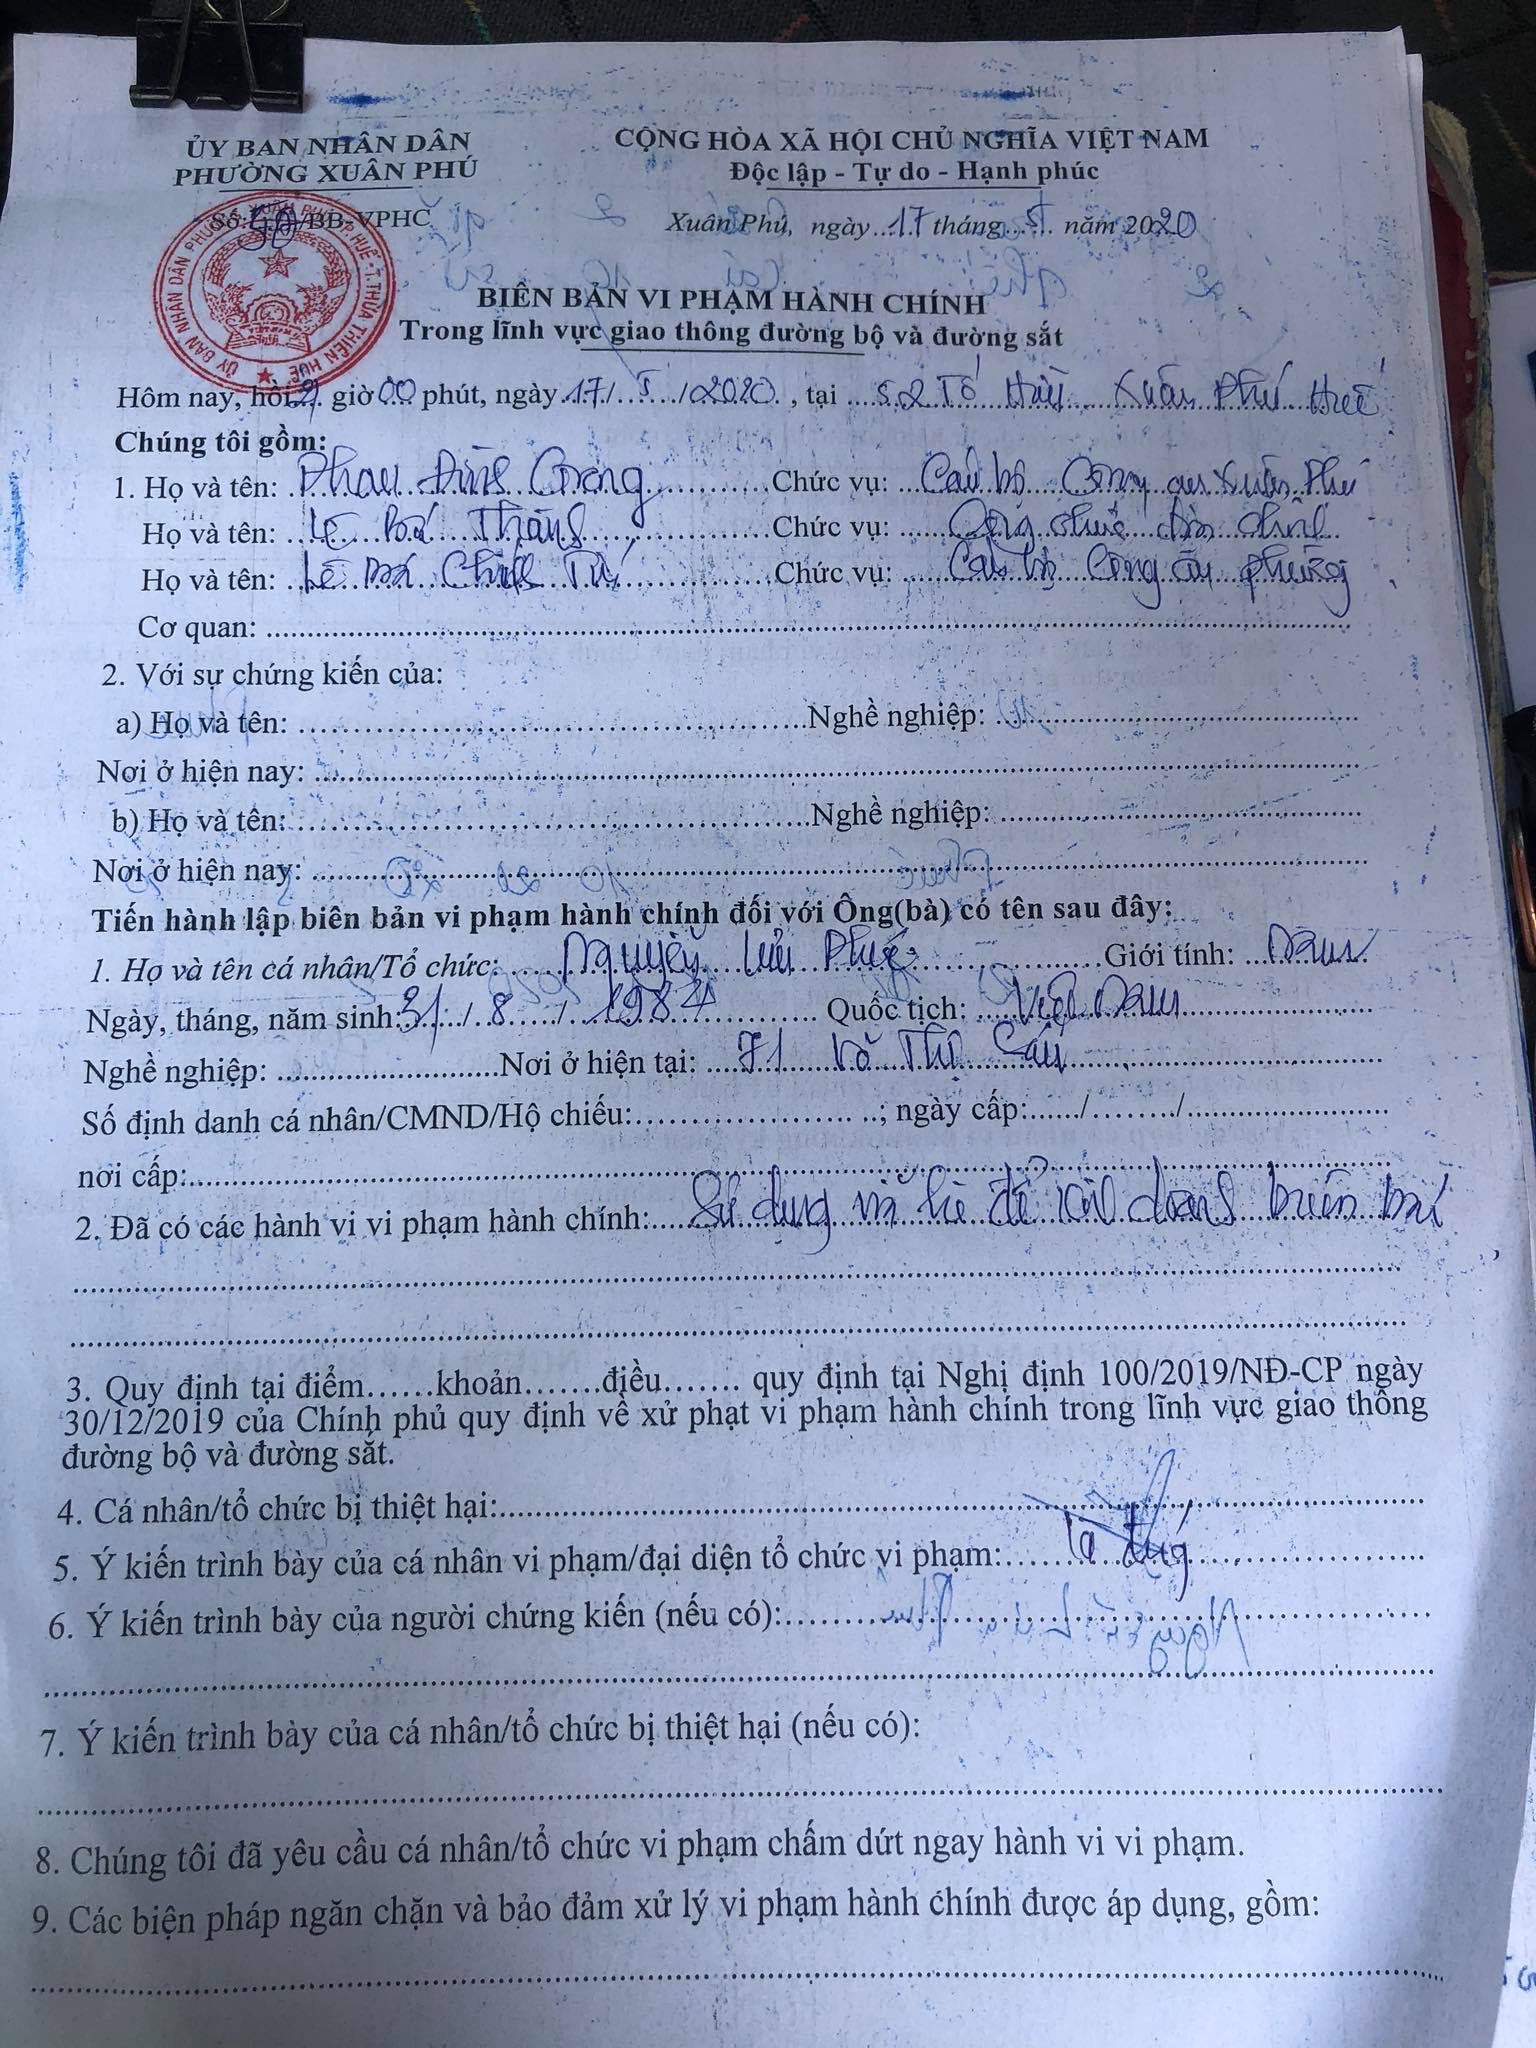 ỦY BAN NHÂN DÂN
PHƯỜNG XUÂN PHÚ
CỘNG HÒA XÃ HỘI CHỦ NGHĨA VIỆT NAM
Độc lập - Tự do - Hạnh phúc
Số: 50/BB-VPHC
Xuân Phú, ngày 17 tháng 5 năm 2020
BIÊN BẢN VI PHẠM HÀNH CHÍNH
Trong lĩnh vực giao thông đường bộ và đường sắt
Hôm nay, hồi giờ 00 phút, ngày 17/5/2020, tại 52 Tố Hữu Xuân Phú Huế
Chúng tôi gồm:
1. Họ và tên: Phan Đình Chức vụ: Cán bộ Công an Xuân Phú
Họ và tên: Lê Bá Thành Chức vụ: Công chức địa chính
Họ và tên: Lê Bá Chức vụ: Cán bộ Công an phường
Cơ quan:
2. Với sự chứng kiến của:
a) Họ và tên: Nghề nghiệp:
Nơi ở hiện nay:
b) Họ và tên: Nghề nghiệp:
Nơi ở hiện nay:
Tiến hành lập biên bản vi phạm hành chính đối với Ông(bà) có tên sau đây:
1. Họ và tên cá nhân/Tổ chức: Nguyễn Lưu Phúc Giới tính: Nam
Ngày, tháng, năm sinh: 31/8/1984 Quốc tịch: Việt Nam
Nghề nghiệp: Nơi ở hiện tại: 71 Võ Thị Sáu
Số định danh cá nhân/CMND/Hộ chiếu: ; ngày cấp: / /
nơi cấp:
2. Đã có các hành vi vi phạm hành chính: Sử dụng vỉa hè để doanh buôn bán
3. Quy định tại điểm……khoản…….điều……. quy định tại Nghị định 100/2019/NĐ-CP ngày
30/12/2019 của Chính phủ quy định về xử phạt vi phạm hành chính trong lĩnh vực giao thông
đường bộ và đường sắt.
4. Cá nhân/tổ chức bị thiệt hại:
5. Ý kiến trình bày của cá nhân vi phạm/đại diện tổ chức vi phạm:
6. Ý kiến trình bày của người chứng kiến (nếu có):
7. Ý kiến trình bày của cá nhân/tổ chức bị thiệt hại (nếu có):
8. Chúng tôi đã yêu cầu cá nhân/tổ chức vi phạm chấm dứt ngay hành vi vi phạm.
9. Các biện pháp ngăn chặn và bảo đảm xử lý vi phạm hành chính được áp dụng, gồm: